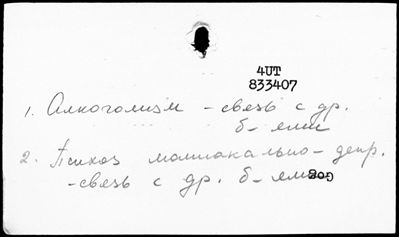 4UT
833407
1. Алкоголизм - связь с др.
б-ями
2. Психоз маниакально-депр.
- связь с др. б-ями